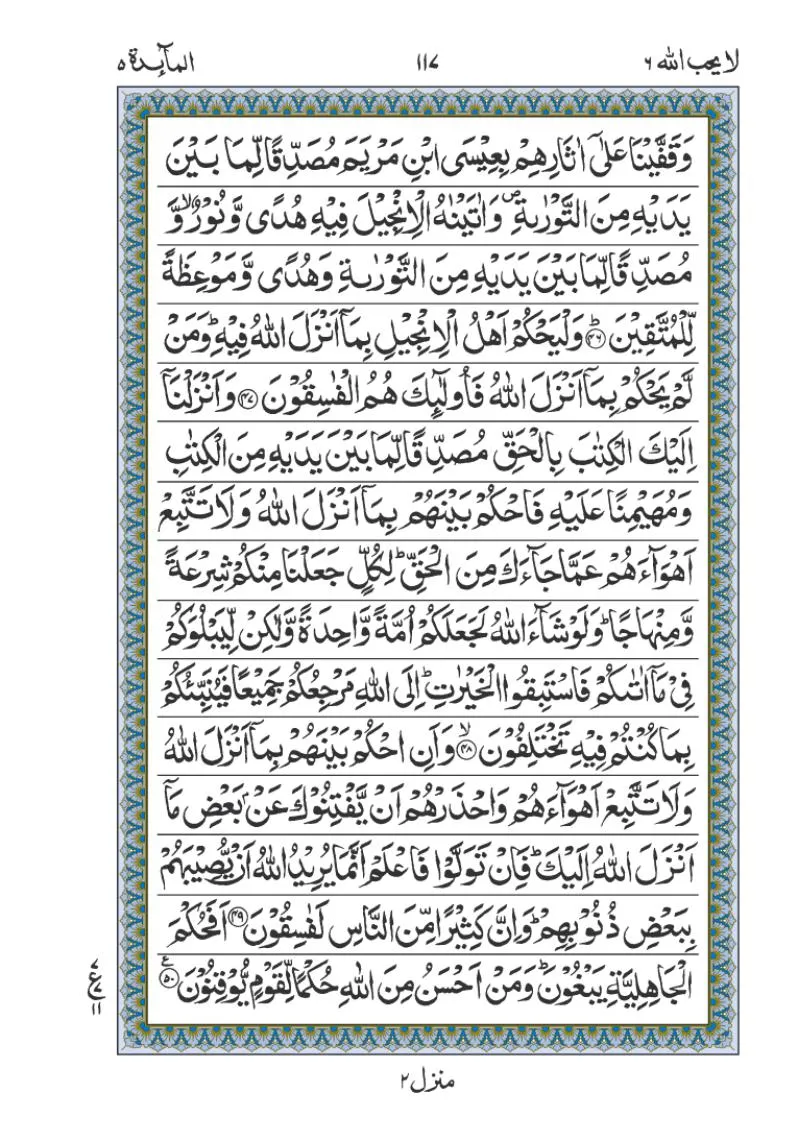 لا يحب الله ٦ ١١٧ المآئدة ٥
وَقَفَّيْنَا عَلٰٓى اٰثَارِهِمْ بِعِيْسَى ابْنِ مَرْيَمَ مُصَدِّقًا لِّمَا بَيْنَ
يَدَيْهِ مِنَ التَّوْرٰىةِ ۪ وَاٰتَيْنٰهُ الْاِنْجِيْلَ فِيْهِ هُدًى وَّنُوْرٌ ۙ وَّ
مُصَدِّقًا لِّمَا بَيْنَ يَدَيْهِ مِنَ التَّوْرٰىةِ وَهُدًى وَّمَوْعِظَةً
لِّلْمُتَّقِيْنَ ؕ‏﴿۴۶﴾ وَلْيَحْكُمْ اَهْلُ الْاِنْجِيْلِ بِمَاۤ اَنْزَلَ اللّٰهُ فِيْهِ ؕ وَمَنْ
لَّمْ يَحْكُمْ بِمَاۤ اَنْزَلَ اللّٰهُ فَاُولٰٓئِكَ هُمُ الْفٰسِقُوْنَ ﴿۴۷﴾ وَاَنْزَلْنَاۤ
اِلَيْكَ الْكِتٰبَ بِالْحَقِّ مُصَدِّقًا لِّمَا بَيْنَ يَدَيْهِ مِنَ الْكِتٰبِ
وَمُهَيْمِنًا عَلَيْهِ فَاحْكُمْ بَيْنَهُمْ بِمَاۤ اَنْزَلَ اللّٰهُ وَلَا تَتَّبِعْ
اَهْوَآءَهُمْ عَمَّا جَآءَكَ مِنَ الْحَقِّ ؕ لِكُلٍّ جَعَلْنَا مِنْكُمْ شِرْعَةً
وَّمِنْهَاجًا ؕ وَلَوْ شَآءَ اللّٰهُ لَجَعَلَكُمْ اُمَّةً وَّاحِدَةً وَّلٰكِنْ لِّيَبْلُوَكُمْ
فِيْ مَاۤ اٰتٰىكُمْ فَاسْتَبِقُوا الْخَيْرٰتِ ؕ اِلَى اللّٰهِ مَرْجِعُكُمْ جَمِيْعًا فَيُنَبِّئُكُمْ
بِمَا كُنْتُمْ فِيْهِ تَخْتَلِفُوْنَ ۙ‏﴿۴۸﴾ وَاَنِ احْكُمْ بَيْنَهُمْ بِمَاۤ اَنْزَلَ اللّٰهُ
وَلَا تَتَّبِعْ اَهْوَآءَهُمْ وَاحْذَرْهُمْ اَنْ يَّفْتِنُوْكَ عَنْۢ بَعْضِ مَاۤ
اَنْزَلَ اللّٰهُ اِلَيْكَ ؕ فَاِنْ تَوَلَّوْا فَاعْلَمْ اَنَّمَا يُرِيْدُ اللّٰهُ اَنْ يُّصِيْبَهُمْ
بِبَعْضِ ذُنُوْبِهِمْ ؕ وَاِنَّ كَثِيْرًا مِّنَ النَّاسِ لَفٰسِقُوْنَ ﴿۴۹﴾ اَفَحُكْمَ
الْجَاهِلِيَّةِ يَبْغُوْنَ ؕ وَمَنْ اَحْسَنُ مِنَ اللّٰهِ حُكْمًا لِّقَوْمٍ يُّوْقِنُوْنَ ﴿۵۰﴾ ع
ع ٧ ٧ ١١
منزل ٢